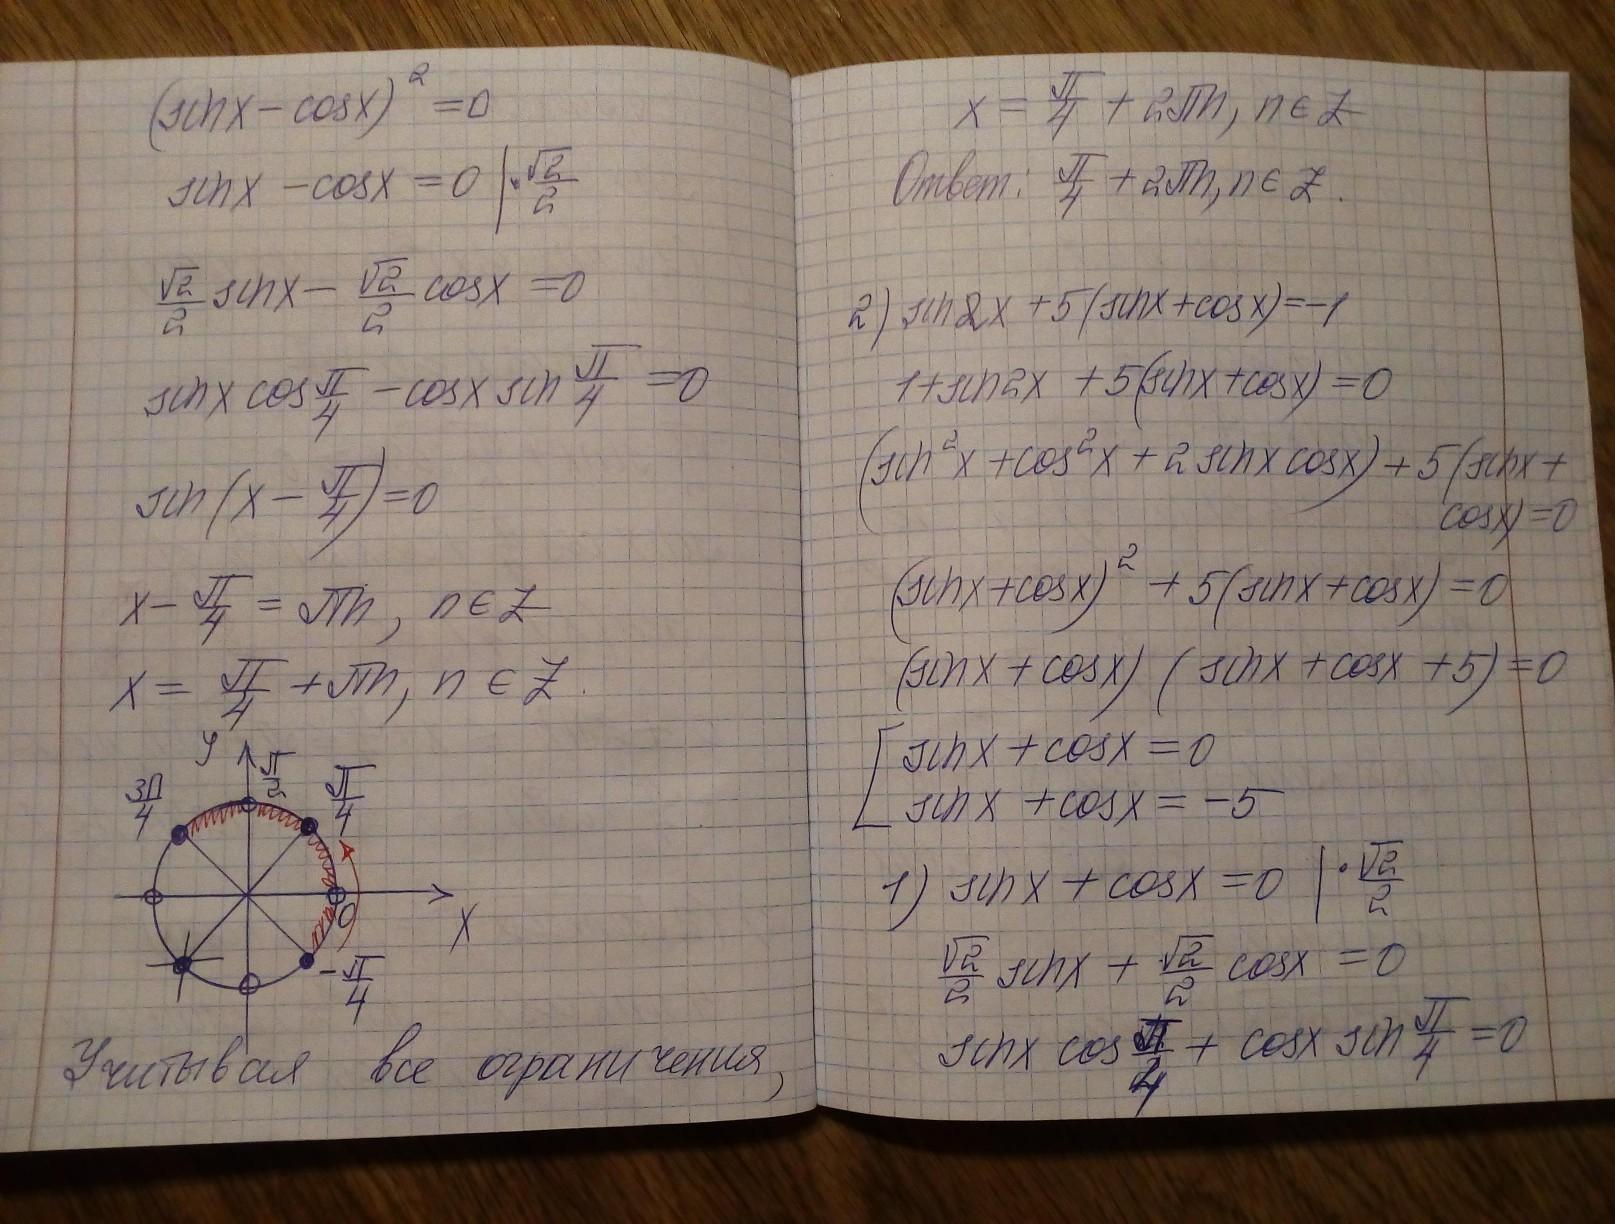 (sinx - cosx)² = 0
sinx - cosx = 0 | · √2/2
√2/2 sinx - √2/2 cosx = 0
sinx cos π/4 - cosx sin π/4 = 0
sin(x - π/4) = 0
x - π/4 = πn, n ∈ Z
x = π/4 + πn, n ∈ Z.
y
π/2
3π/4
π/4
0
x
-π/4
Учитывая все ограничения,
x = π/4 + 2πn, n ∈ Z
Ответ: π/4 + 2πn, n ∈ Z.
2) sin2x + 5(sinx + cosx) = -1
1 + sin2x + 5(sinx + cosx) = 0
(sin²x + cos²x + 2 sinx cosx) + 5(sinx +
cosx) = 0
(sinx + cosx)² + 5(sinx + cosx) = 0
(sinx + cosx) (sinx + cosx + 5) = 0
[ sinx + cosx = 0
sinx + cosx = -5
1) sinx + cosx = 0 | · √2/2
√2/2 sinx + √2/2 cosx = 0
sinx cos π/4 + cosx sin π/4 = 0